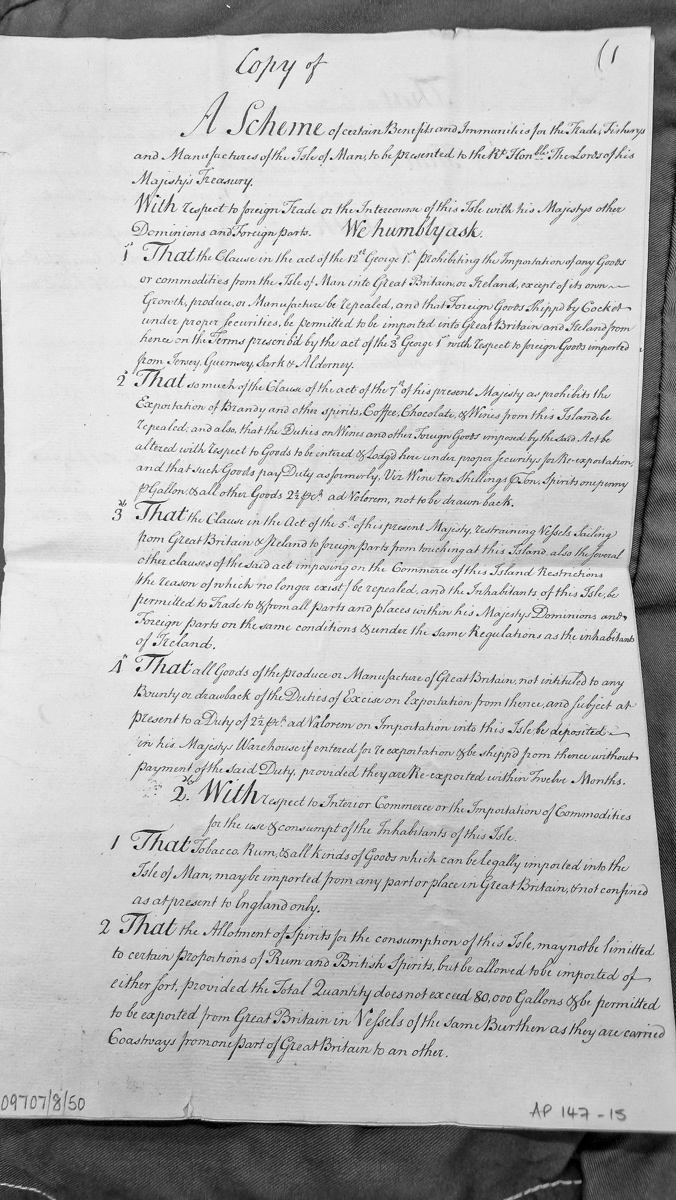 Copy of
(1
A Scheme of certain Benefits and Immunities for the Trade, Fisherys
and Manufactures of the Isle of Man, to be presented to the Rt. Honble. The Lords of his
Majestys Treasury.
With respect to foreign Trade or the Intercourse of this Isle with his Majestys other
Dominions and Foreign parts. We humbly ask.
1st That the Clause in the act of the 12th George 1st prohibiting the Importation of any Goods
or commodities from the Isle of Man into Great Britain, or Ireland, except of its own
Growth, produce, or Manufacture be repealed, and that Foreign Goods Shippd by Cocket
under proper Securities, be permitted to be imported into Great Britain and Ireland from
hence on the Terms prescrib'd by the act of the 3d Gorge 1st with respect to foreign Goods imported
from Jersey, Guernsey, Sark & Alderney.
2d That so much of the Clause of the act of the 7th of his present Majesty as prohibits the
Exportation of Brandy and other spirits, Coffee, Chocolate, & Wines from this Island, be
repealed, and also, that the Duties on Wines and other Foreign Goods imposed by the said Act be
altered with respect to Goods to be entered & Lodgd here under proper securitys for Re-exportation,
and that such Goods pay Duty as formerly, Viz Wine ten Shillings ⅌ Ton, Spirits one penny
⅌ Gallon, & all other Goods 2½ ⅌Ct. ad Velorem, not to be drawn back.
3dly That the Clause in the Act of the 5th of his present Majesty, restraining Vessels Sailing
from Great Britain & Ireland to foreign parts from touching at this Island, also the several
other clauses of the said act imposing on the Commerce of this Island Restrictions
(the reason of which no longer exist) be repealed, and the Inhabitants of this Isle, be
permitted to Trade to & from all parts and places within his Majestys Dominions and
Foreign parts on the same conditions & under the same Regulations as the inhabitants
of Ireland.
4th That all Goods of the produce or Manufacture of Great Britain, not intituled to any
Bounty or drawback of the Duties of Excise on Exportation from thence, and subject at
present to a Duty of 2½ ⅌Ct. ad Velorem on Importation into this Isle, be deposited
in his Majestys Warehouse if entered for re exportation & be shippd from thence without
payment of the said Duty, provided they are Re-exported within Twelve Months.
2dly. With respect to Interior Commerce or the Importation of Commodities
for the use & consumpt of the Inhabitants of this Isle.
1 That Tobacco, Rum, & all kinds of Goods which can be legally imported into the
Isle of Man, may be imported from any part or place in Great Britain, & not confined
as at present to England only.
2 That the Allotment of Spirits for the consumption of this Isle, may not be limitted
to certain Proportions of Rum and British Spirits, but be allowed to be imported of
either sort, provided the Total Quantity does not exceed 80,000 Gallons & be permitted
to be exported from Great Britain in Vessels of the same Burthen as they are carried
Coastways from one part of Great Britain to an other.
09707/8/50
AP 147 - 15